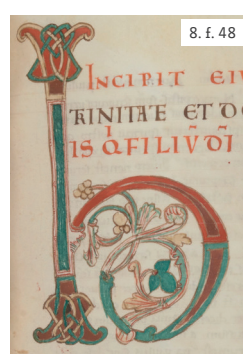 8. f. 48
INCIPIT EIV
TRINITAE ET DO
IS Q̄ FILIV̄ DĪ